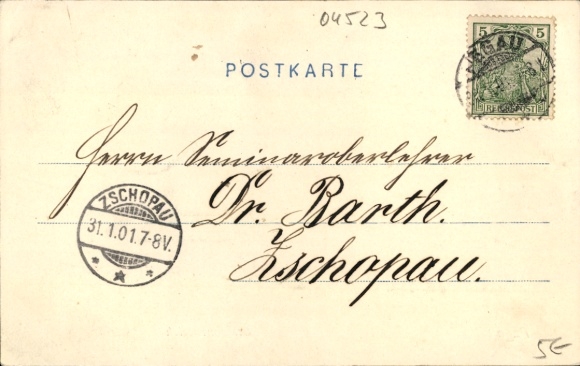 04523
5 5
EGAU
REICHSPOST
POSTKARTE
Herrn Seminaroberlehrer
Dr. Barth.
Zschopau.
ZSCHOPAU
31.1.01.7-8V.
5€